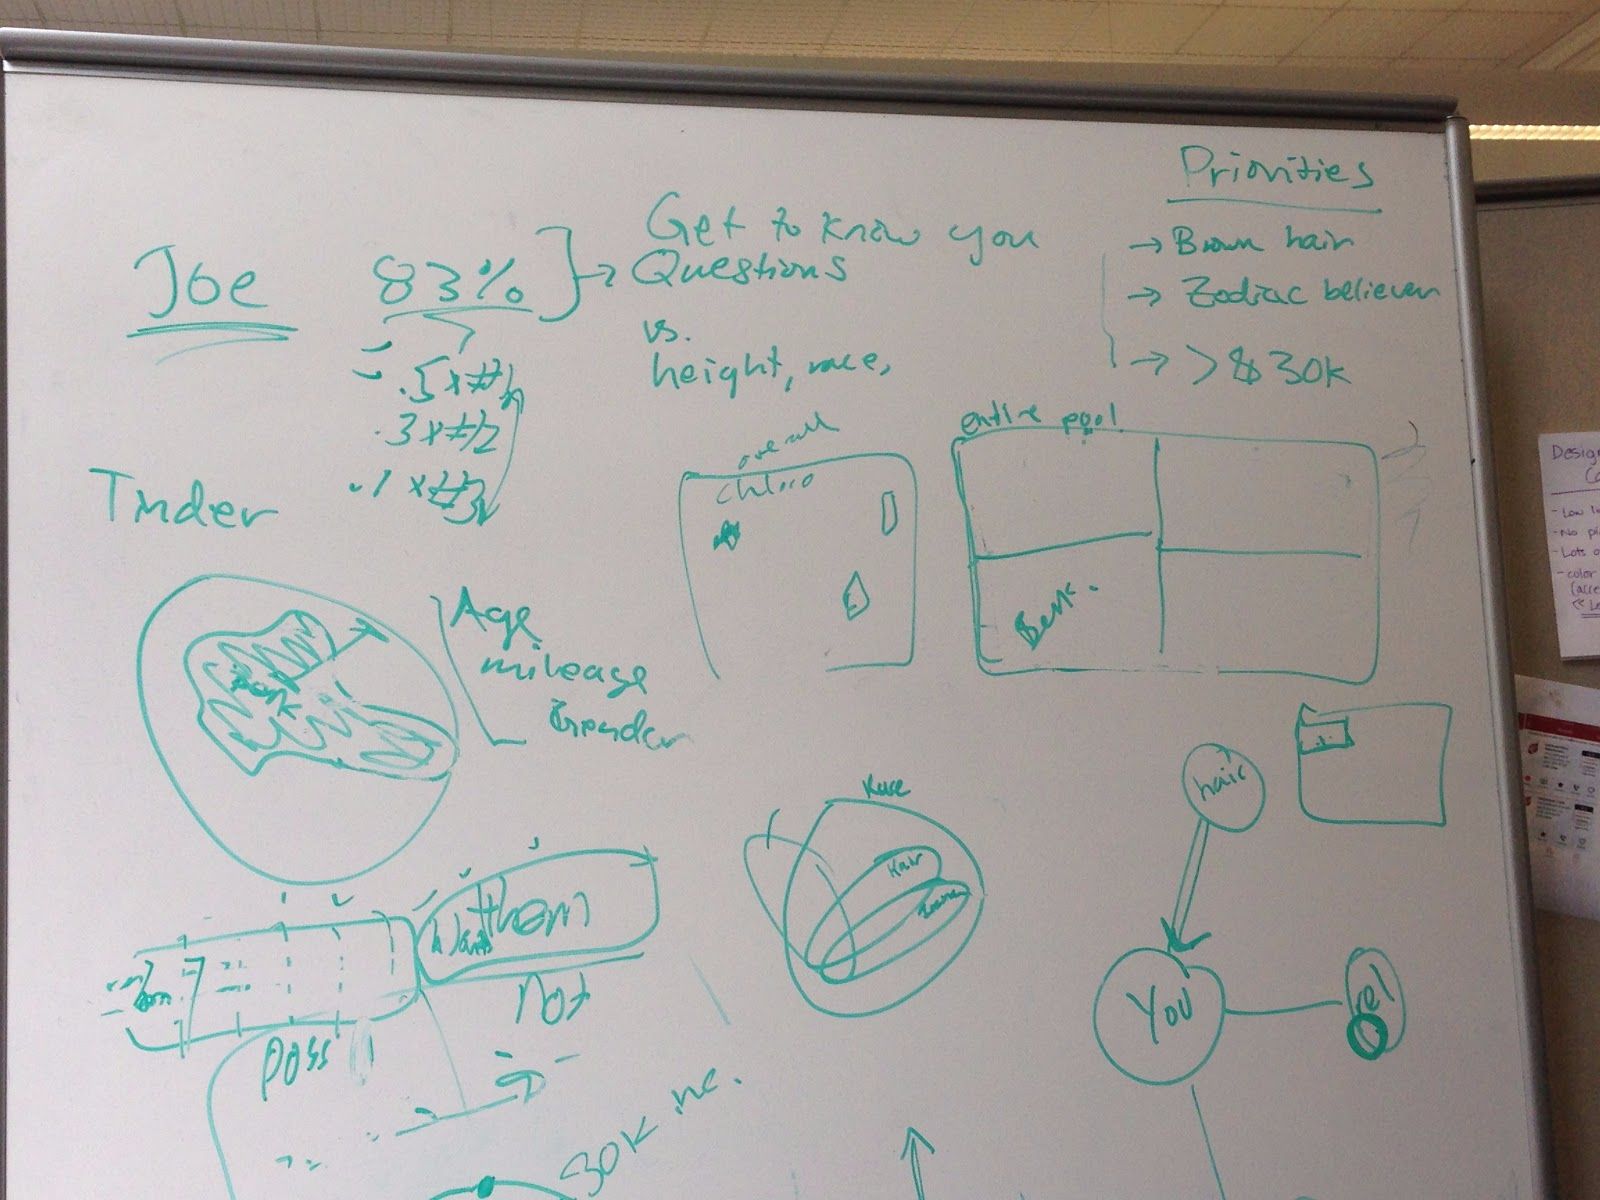 Priorities
Joe 83% Get to know you
Questions
→ Brown hair
→ Zodiac believer
→ > $30K
vs.
height, race,
.5 x #1
.3 x #2
.1 x #3
Tinder
overall
chloro
entire pool
Age
mileage
Gender
Berk.
hair
Race
Hair
them
not
poss
You
rel
30K
Desig
- Low
- No
- Lots
- color